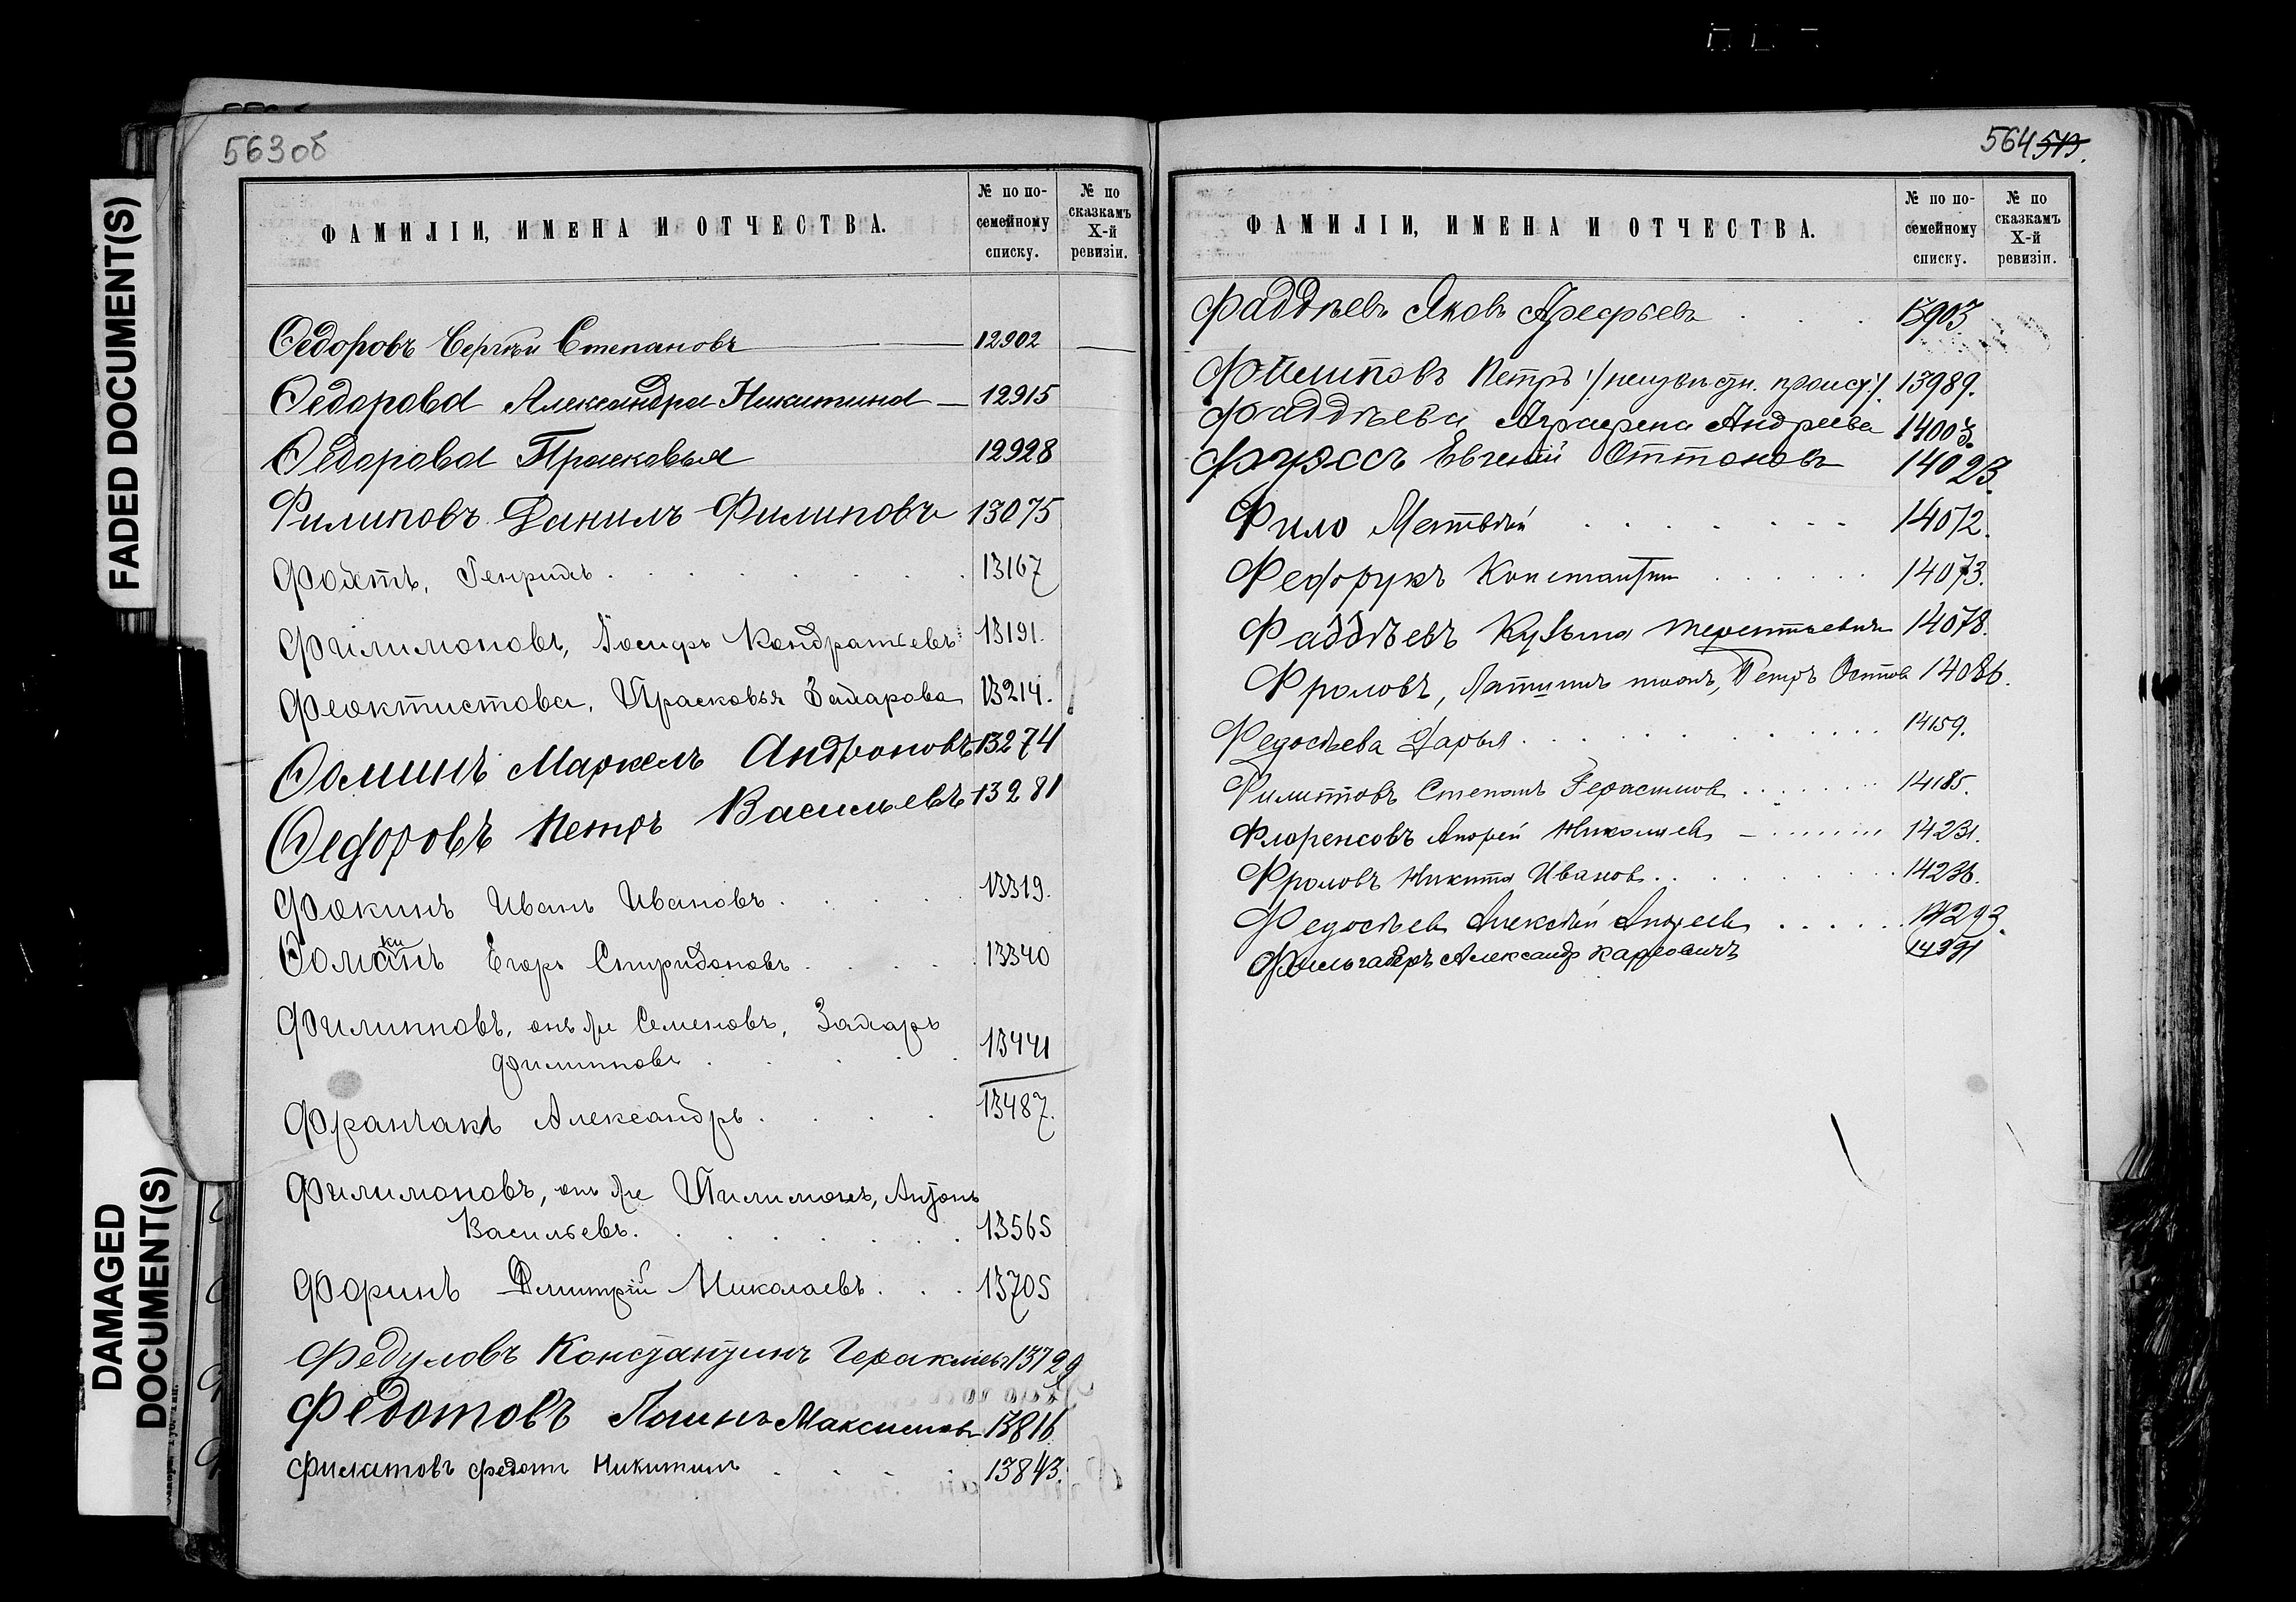 FADED DOCUMENT(S)
DAMAGED
DOCUMENT(S)
563об
ФАМИЛІИ, ИМЕНА И ОТЧЕСТВА.
№ по по-
семейному
списку.
№ по
сказкамъ
X-й
ревизіи.
Ѳедоровъ Сергѣй Степановъ 12902
Ѳедорова Александра Никитина 12915
Ѳедорова Прасковья 12928
Филиповъ Данилъ Филиповъ 13075
Фохтъ, Генрихъ 13167
Филимоновъ, Іосифъ Кондратьевъ 13191.
Феоктистова, Прасковья Захарова 13214.
Ѳоминъ Маркелъ Андроновъ 13274
Ѳедоровъ Петръ Васильевъ 13281
Фокинъ Иванъ Ивановъ 13319.
Егоръ Спиридоновъ 13340
Филипповъ, онъ же Семеновъ, Захаръ
Филипповъ 13441
Александръ 13487.
Филимоновъ, онъ же Пилимонъ, Антонъ
Васильевъ 13565
Форинъ Дмитрій Николаевъ 13705
Федуловъ Константинъ 13729
Федотовъ Максимовъ 13816
Филатовъ Федотъ Никитинъ 13843.
564 513.
ФАМИЛІИ, ИМЕНА И ОТЧЕСТВА.
№ по по-
семейному
списку.
№ по
сказкамъ
X-й
ревизіи.
Фаддѣевъ Яковъ Арефьевъ 13903.
Филиповъ Петръ /неизвѣстн. происх./ 13989.
Фаддѣева Аграфена Андреева 14003.
Евгеній Оттоновъ 14023.
Фило Матвѣй 14072.
Федорукъ Константин 14073.
Фаддѣевъ Кузьма Терентьевичъ 14078.
Фроловъ, Петръ 14086.
Федосѣева Дарья 14159.
Филипповъ Степанъ Герасимов 14185.
Флоренсовъ Андрей Николаев 14231.
Фроловъ Никита Иванов 14236.
Федосѣев Алексѣй Андреев 14293.
Александр Карловичъ